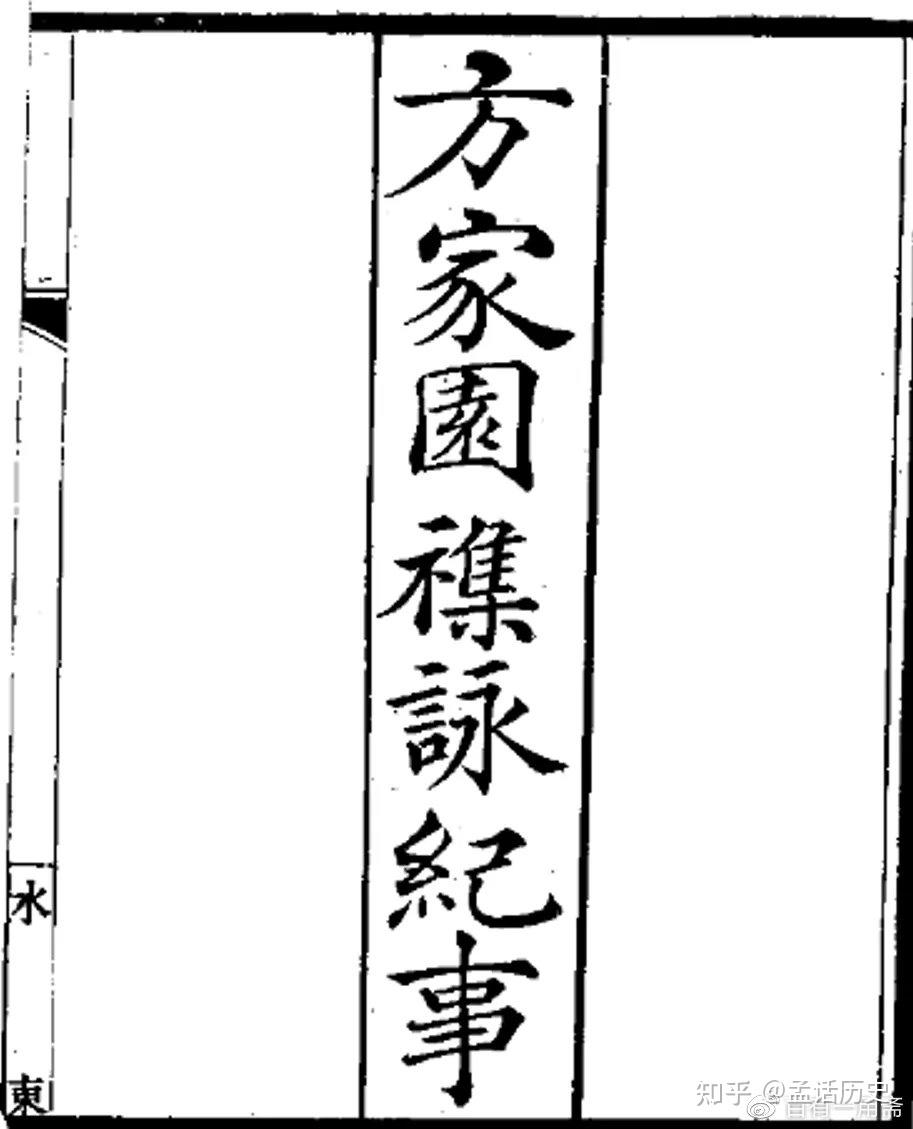 方家園襍詠紀事
水
東
知乎 @孟话历史